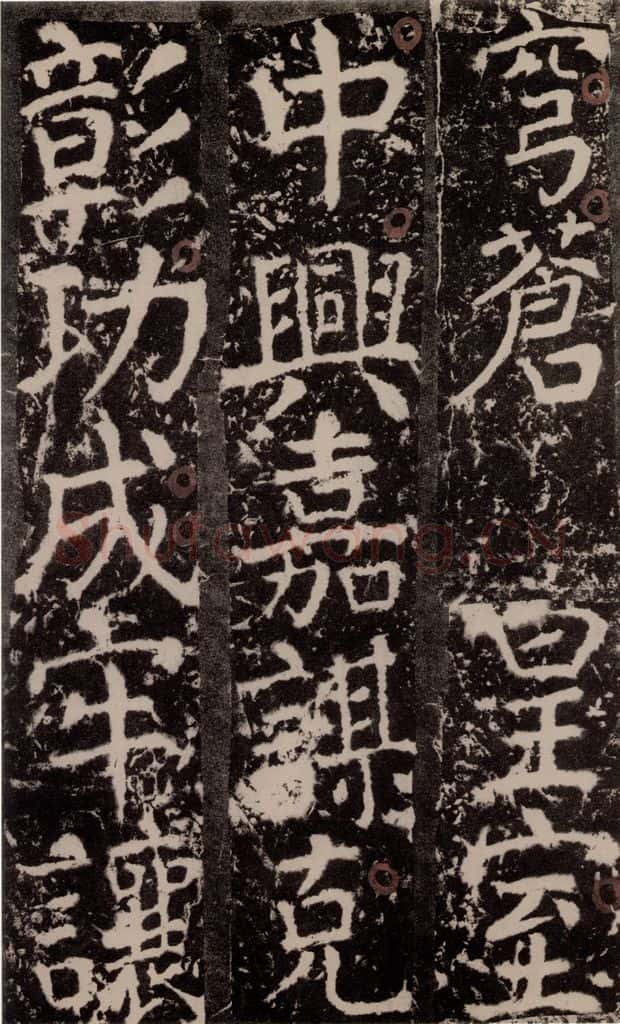 穹蒼皇室
中興嘉謀克
彰功成牢讓
Shufawang.CN